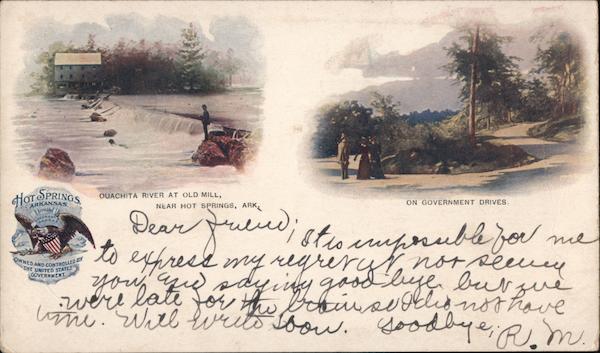 OUACHITA RIVER AT OLD MILL,
NEAR HOT SPRINGS, ARK.
ON GOVERNMENT DRIVES.
HOT SPRINGS,
ARKANSAS
OWNED AND CONTROLLED BY
THE UNITED STATES
GOVERNMENT.
Dear friend;
It is impossible for me
to express my regret at not seeing
you and saying good bye but we
were late for the train so did not have
time. Will write soon. Goodbye,
R. M.